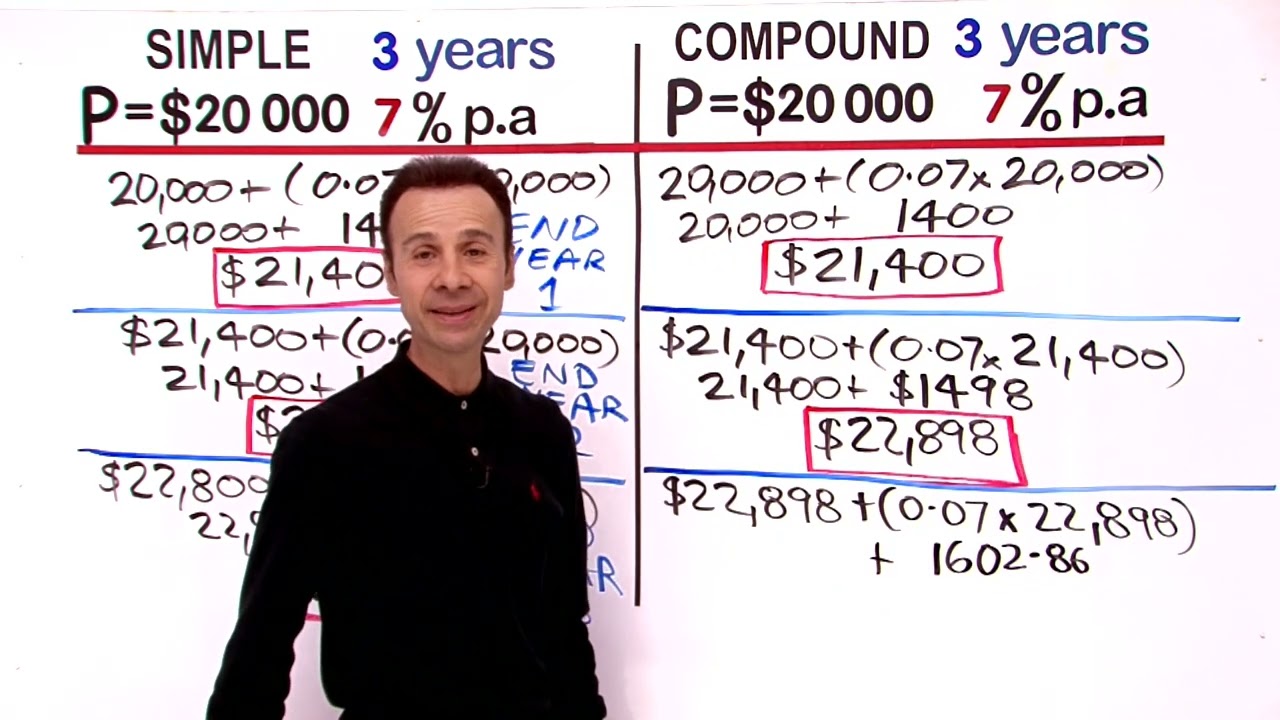 SIMPLE 3 years
P=$20 000 7% p.a
20,000+ (0.07 ,000)
20000+ 14
$21,40
END
YEAR
1
$21,400+(0. 20,000)
21,400+
END
$22,800
22,
COMPOUND 3 years
P=$20 000 7% p.a
20,000+(0.07x 20,000)
20,000+ 1400
$21,400
$21,400+(0.07x 21,400)
21,400+ $1498
$22,898
$22,898+(0.07x22,898)
+ 1602.86